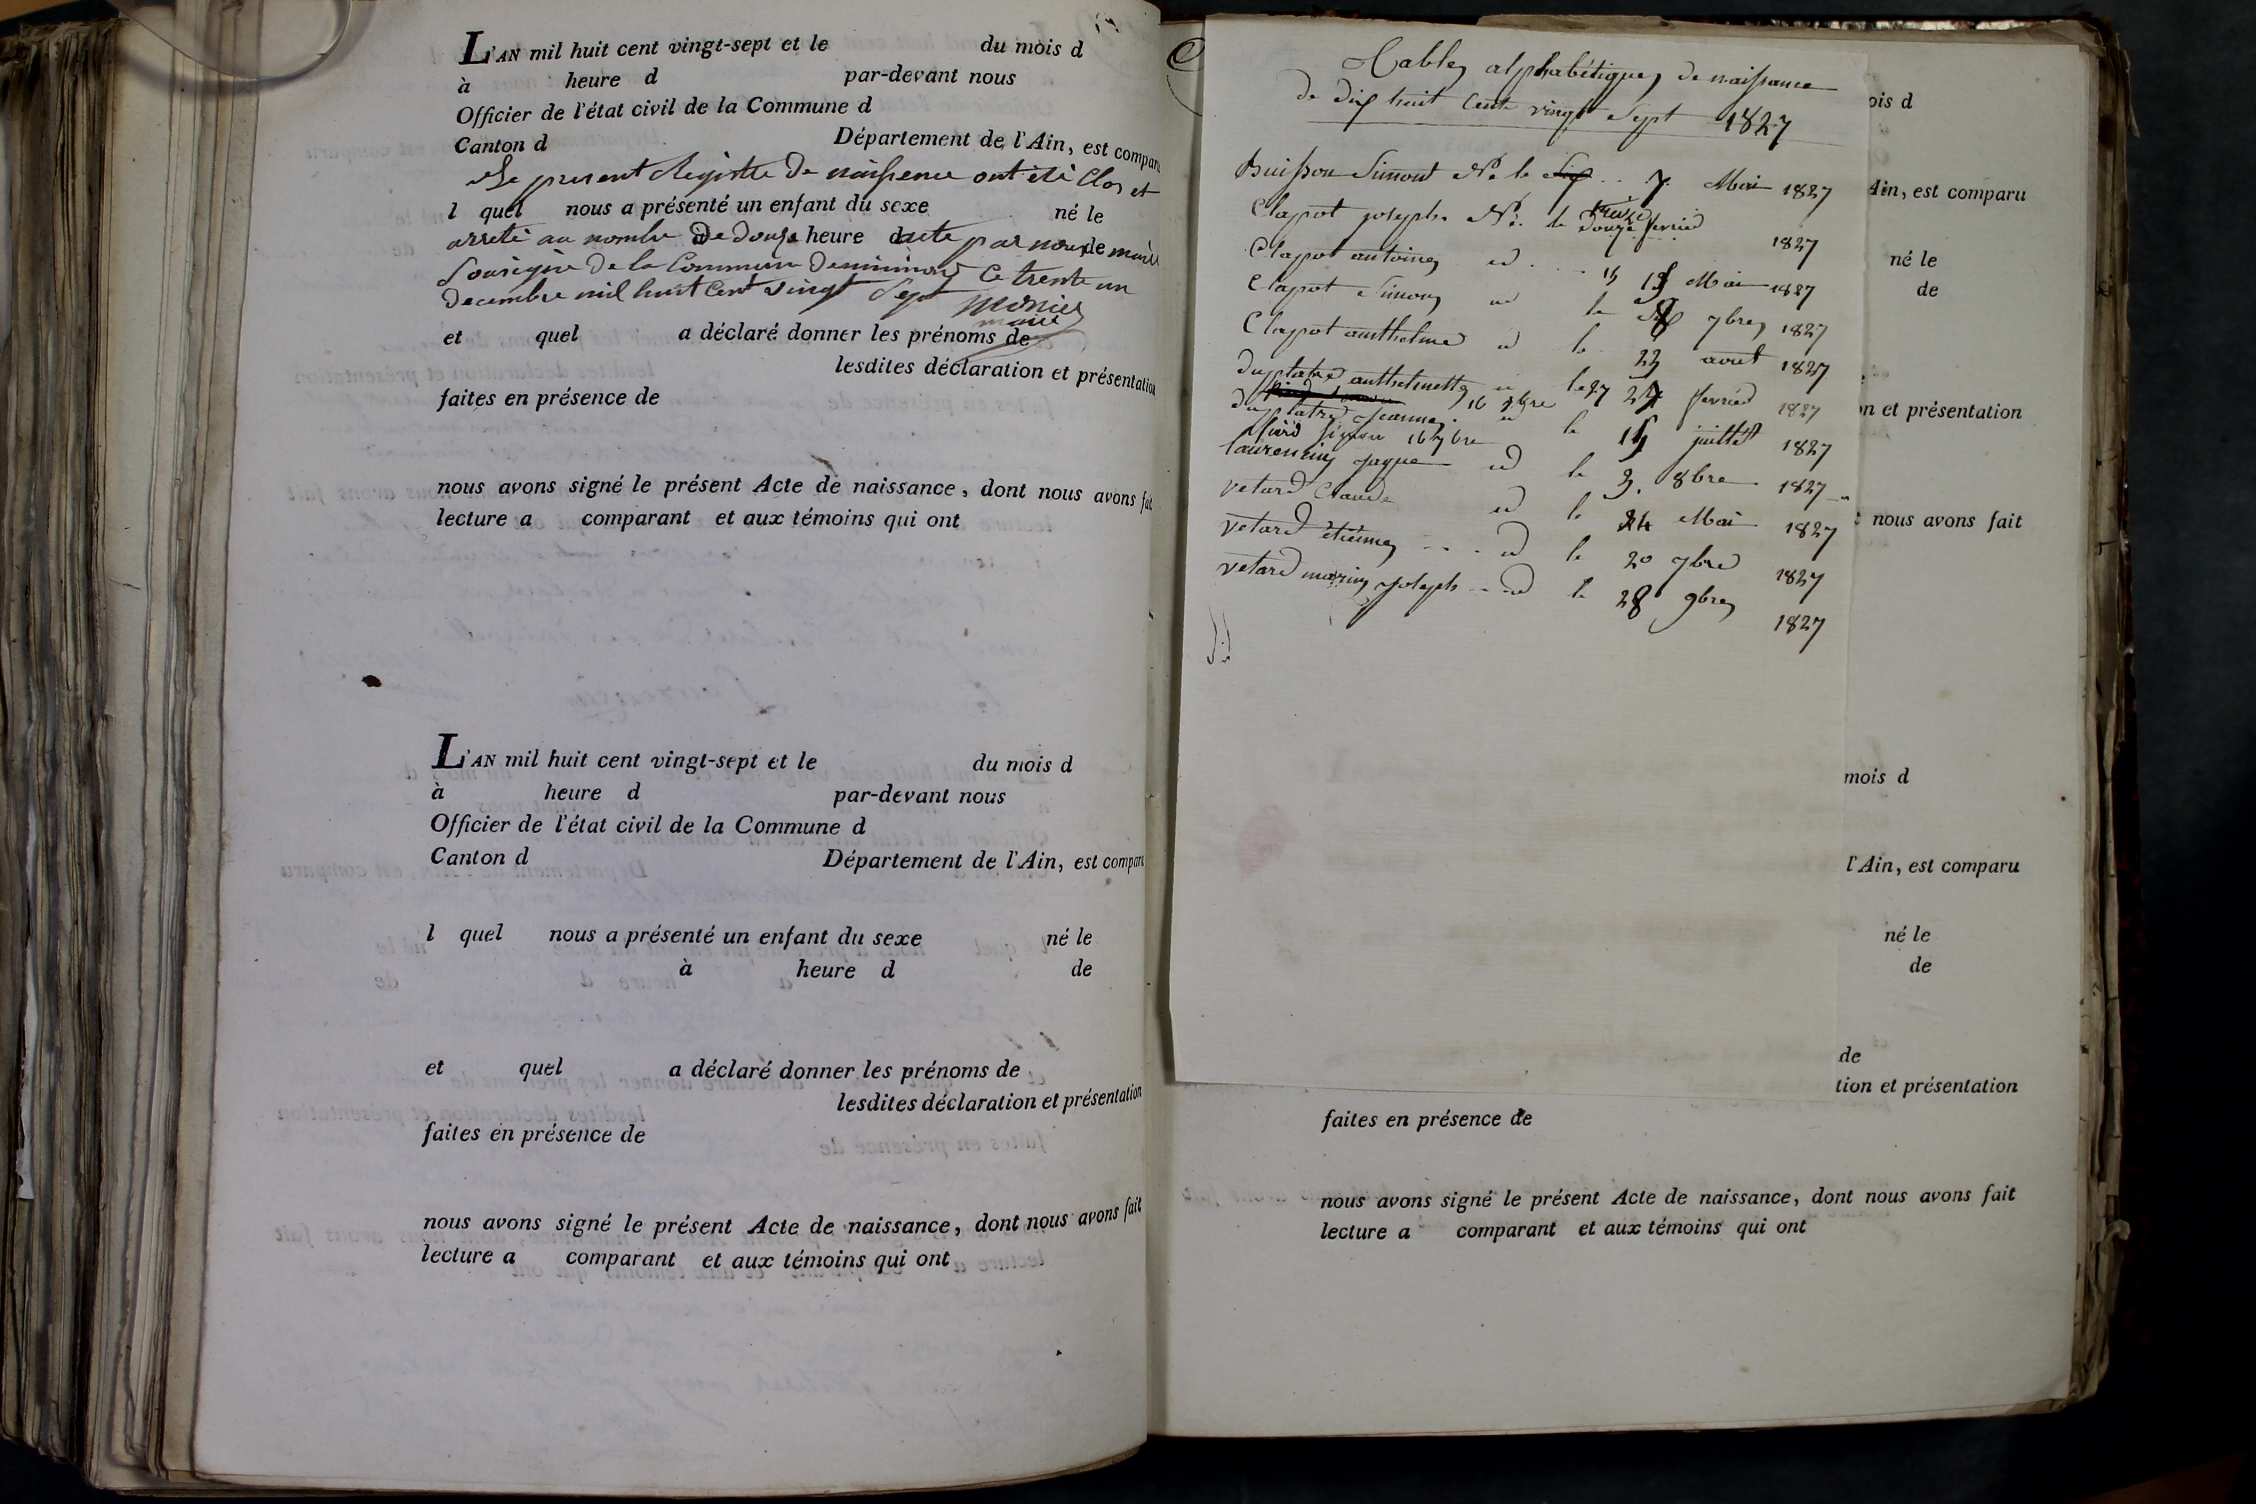 L'AN mil huit cent vingt-sept et le du mois d
à heure d par-devant nous
Officier de l'état civil de la Commune d
Canton d Département de l'Ain, est comparu
Le present Registre de naissence ont été Clos et
l quel nous a présenté un enfant du sexe né le
arreté au nombre de douze acte par nous maire
à heure d de
Sousigné de la Commune Ce trente un
decembre mil huit Cent vingt Sept Monier
maire
et quel a déclaré donner les prénoms de
lesdites déclaration et présentation
faites en présence de
nous avons signé le présent Acte de naissance, dont nous avons fait
lecture a comparant et aux témoins qui ont
L'AN mil huit cent vingt-sept et le du mois d
à heure d par-devant nous
Officier de l'état civil de la Commune d
Canton d Département de l'Ain, est comparu
l quel nous a présenté un enfant du sexe né le
à heure d de
et quel a déclaré donner les prénoms de
lesdites déclaration et présentation
faites en présence de
nous avons signé le présent Acte de naissance, dont nous avons fait
lecture a comparant et aux témoins qui ont
Tables alphabétiques de naissance
de dix huit Cent vingt Sept 1827
Buisson Simont Né le 7 Mai 1827
Clapot joseph Né le treize douze fevrier 1827
Clapot antoine id 15 Mai 1827
Clapot Simon id le 8 7bre 1827
Clapot anthelme id le 23 aout 1827
duplatre anthelmette id le 27 fevrier 1827
16 7bre
duplatre Jeanne id le 15 juillet 1827
Simon 16 7bre
Laurencin Jaque id le 3. 8bre 1827
vetard Claude id le 24 Mai 1827
vetard étienne id le 20 7bre 1827
vetard marin joseph id le 28 9bre 1827
ois d
Ain, est comparu
né le
de
on et présentation
nous avons fait
mois d
l'Ain, est comparu
né le
de
de
tion et présentation
faites en présence de
nous avons signé le présent Acte de naissance, dont nous avons fait
lecture a comparant et aux témoins qui ont